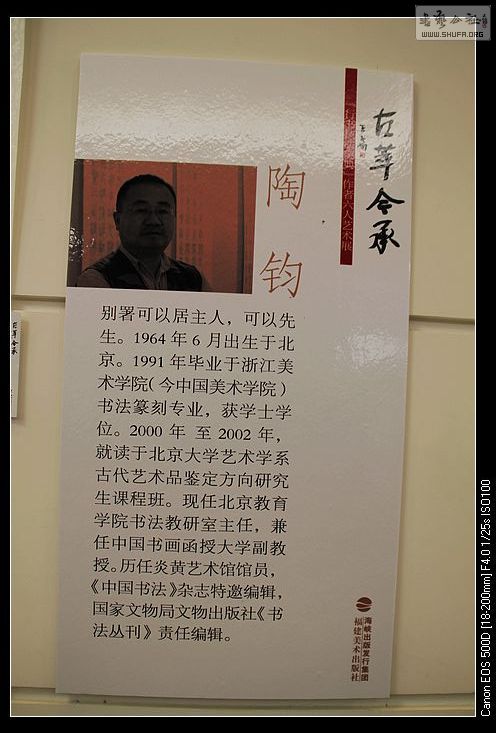 書藝公社
WWW.SHUFA.ORG
古華今承
作者六人艺术展
陶钧
别署可以居主人，可以先
生。1964 年 6 月出生于北
京。1991 年毕业于浙江美
术学院（今中国美术学院）
书法篆刻专业，获学士学
位。2000 年 至 2002 年，
就读于北京大学艺术学系
古代艺术品鉴定方向研究
生课程班。现任北京教育
学院书法教研室主任，兼
任中国书画函授大学副教
授。历任炎黄艺术馆馆员，
《中国书法》杂志特邀编辑，
国家文物局文物出版社《书
法丛刊》责任编辑。
海峡出版发行集团
福建美术出版社
Canon EOS 500D [18-200mm] F4.0 1/25s ISO100